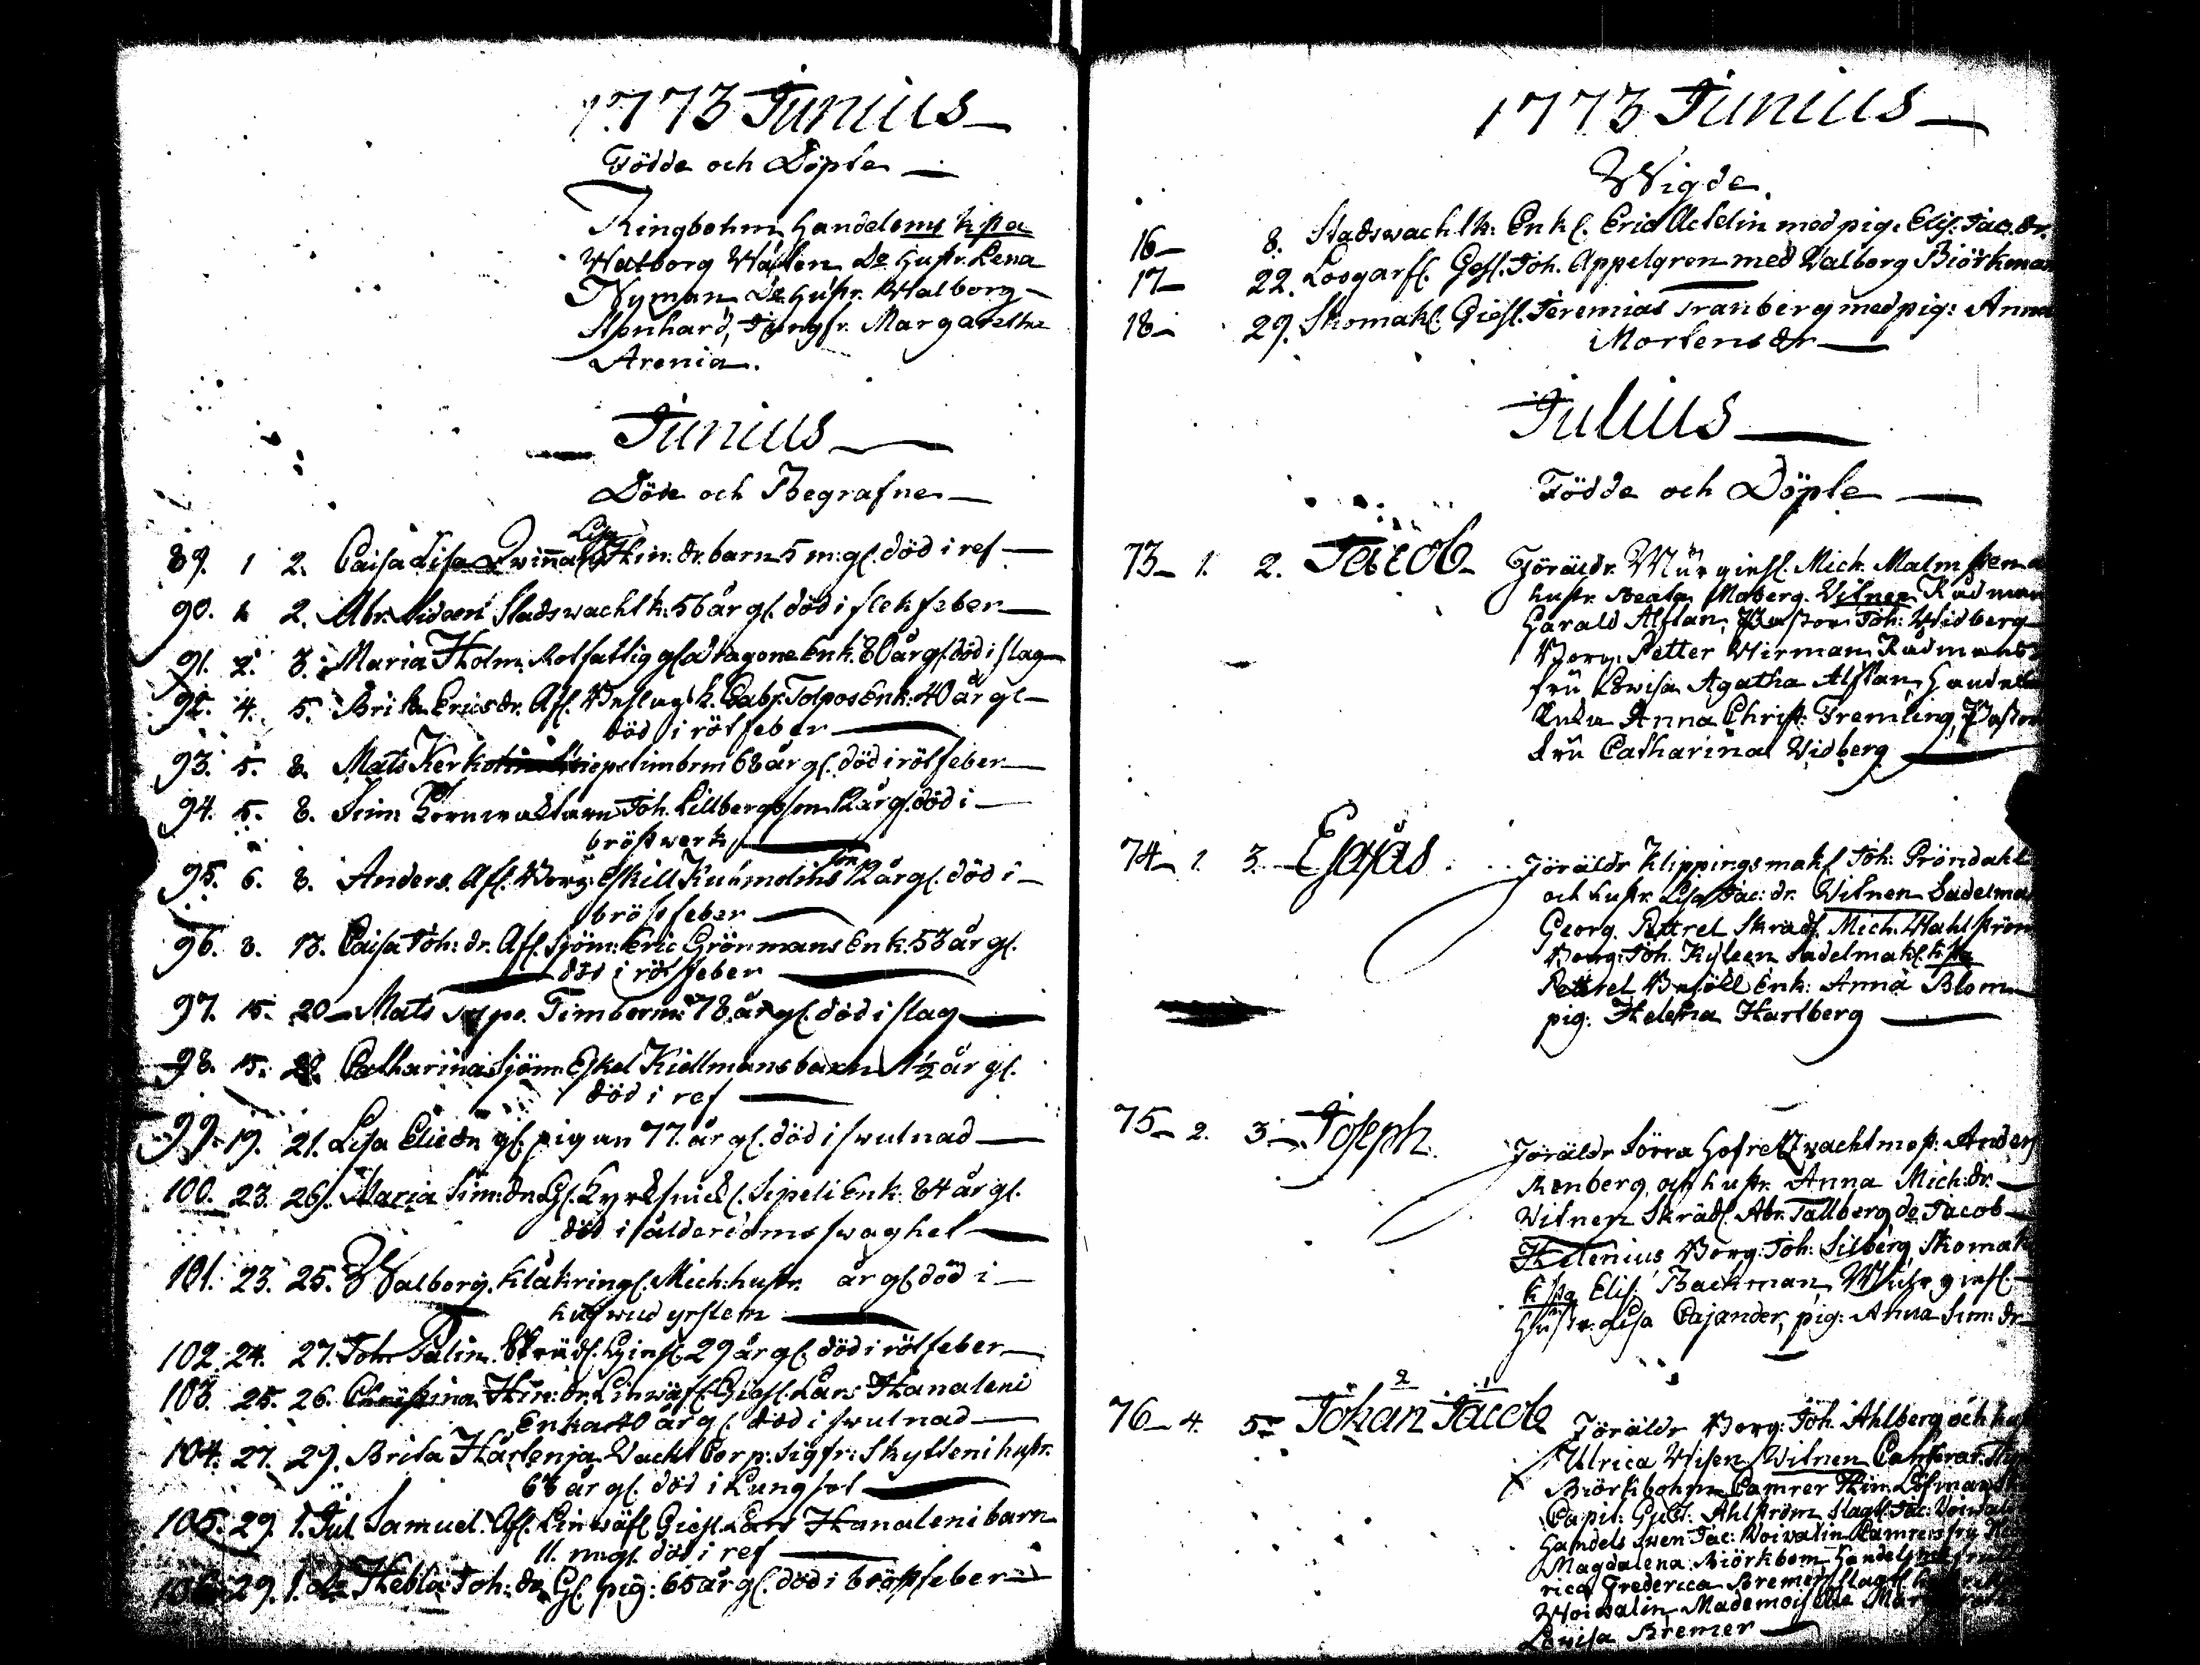 1773 Junius
Födde och Döpte
Ringbohm, handelsms k:sta
Walborg Wahlen do hustr. Lena
Nyman do hustr. Walborg
Jungfr. Margaretha
Arenia.
Junius
Döde och Begrafne
89. 1 2. Caisa Lisa Hin: dr. barn 5 m: gl. död i ref
90. 1 2. Abr. Lideen Stadswacht k: 56 år gl. död i flekfeber
91. 2. 3. Maria Holm Rotfattig gl. Dragone Enk. 80 år gl. död i slag
92. 4. 5. Brita Ericsdr. Afl. Beslags k. Gabr. Tolpos Enk: 40 år gl
död i rötfeber
93. 5. 8. Mats Kerko timbrm 68 år gl. död i rötfeber
94. 5. 8. Sim Joh. Lillbergs son 12 år gl. död i
bröstwerk
95. 6. 8. Anders Afl. Borg: Eskill Kuhmolins son 12 år gl. död i
bröstfeber
96. 8. 13. Caisa Joh: dr. Afl. Sjöm: Eric Grönmans Enk: 53 år gl.
död i rötfeber
97. 15. 20 Mats Timberm: 78 år gl. död i slag
98. 15. 20. Catharina Sjöm: Eskel Kiellmans barn 1½ år gl.
död i ref
99. 19. 21. Lisa Elisdr gl. pigan 77. år gl. död i swulnad
100. 23. 26. Maria Sim: dr Gl. Sipeli Enk. 84 år gl.
död i ålderdoms swaghet
101. 23. 25. Walborg Klåkringl. Mich: hustr. år gl. död i
hufwud yrslem
102. 24. 27. Joh. Palin. Skräd. Giesl. 29 år gl. död i rötfeber
103. 25. 26. Christina Hin: dr. Linwäfl. Giesl. Lars Hanaleni
Enka 40 år gl. död i swulnad
104. 27. 29. Brita Hartenja Vacht Corp: Sigfr: Skytteni hustr.
68 år gl. död i Lungsot
105. 29. 1. Jul Samuel. Afl. Linwäfl. Giesl. Lars Hanaleni barn
11. m: gl. död i ref
106. 29. 1. do Hebla Joh: dr Gl. pig: 65 år gl. död i bröstfeber
1773 Junius
Wigde
16 8. Stadswachtk: Enkl. Eric Achelin med pig: Elis: Jac: dr.
17 22. Logarfl. Gesl. Joh. Appelgren med Walborg Biörkman
18 29. Skomakl. Giesl. Jeremias Tranberg med pig: Anna
Mortensdr
Julius
Födde och Döpte
73 1. 2. Jacob Föräldr. Mürgiesl. Mich. Malmsten
hustr. Beata Moberg. Witnen Rådman
Harald Alftan, Pastor Joh: Widberg
Borg: Petter Wirman Rådmans
fru Lowisa Agatha Alftan, Handels
Anna Christ: Tremling, Pastor
fru Catharina Widberg
74 1. 3. Esaias Föräldr Klippingsmakl. Joh: Gröndahl
och hustr. Lisa Jac: dr. Witnen Sadelma
Georg Pettrel Skrädl. Mich. Wahlström
Borg: Joh. Kyleen sadelmakl. k:sta
Pettrel Enk: Anna Blom
pig: Helena Hartberg
75 2. 3 Joseph. Föräldr Förra Hofretz wachtmest: Anders
Renberg, och hustr. Anna Mich: dr.
Witnen Skrädl. Abr. Tallberg do Jacob
Helenius Borg: Joh: Silberg Skomak
k:sta Elis: Backman, Mürgiesl.
hustr. Lisa Cajander, pig: Anna Sim: dr
76 4. 5 Johan Jacob Föräldr Borg: Joh. Ahlberg och hustr
Ulrica Wisen Witnen
Biörkbohm Camrer Hin: Löfman
Capit: Gust: Ahlström Slagt. Jac:
Handelswen Jac: Woiwalin Camrers fru
Magdalena Biörkbom
rica Frederica Bremer
Woiwalin Mademoiselle
Lowisa Bremer